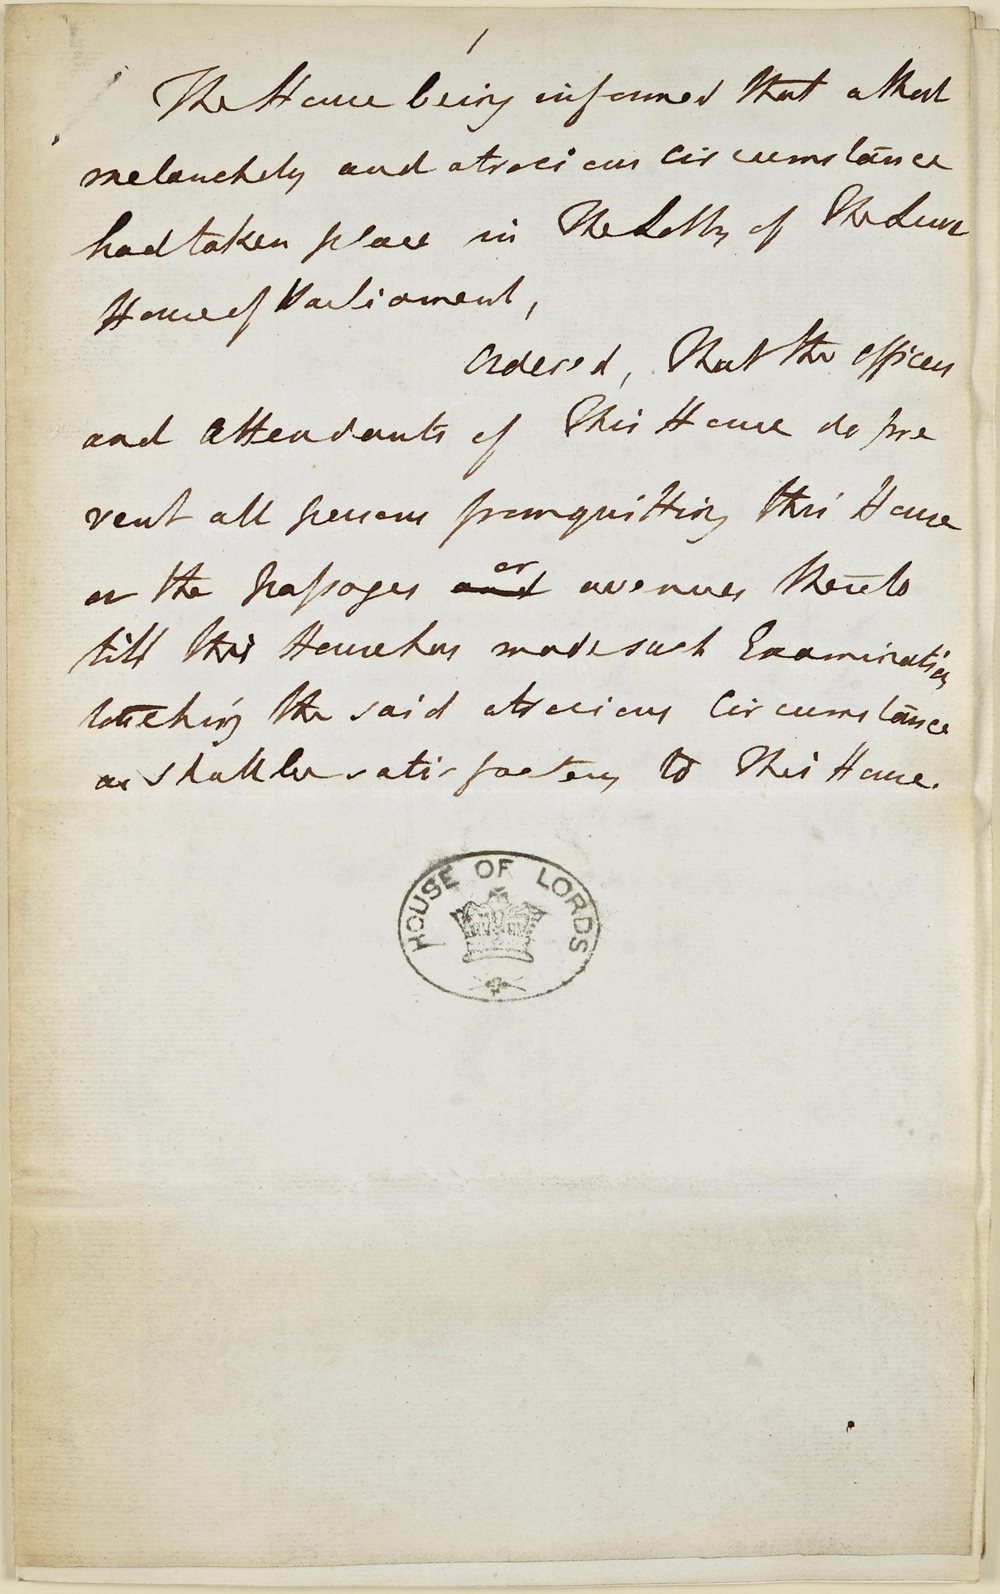 1
The House being informed that a Most
melancholy and atrocious circumstance
had taken place in The Lobby of The Lower
House of Parliament,
Ordered, That the officers
and Attendants of This House do pre
vent all persons from quitting this House
or the passages and or avenues thereto
till this House has made such Examination
touching the said atrocious Circumstance
as shall be satisfactory to This House.
HOUSE OF LORDS